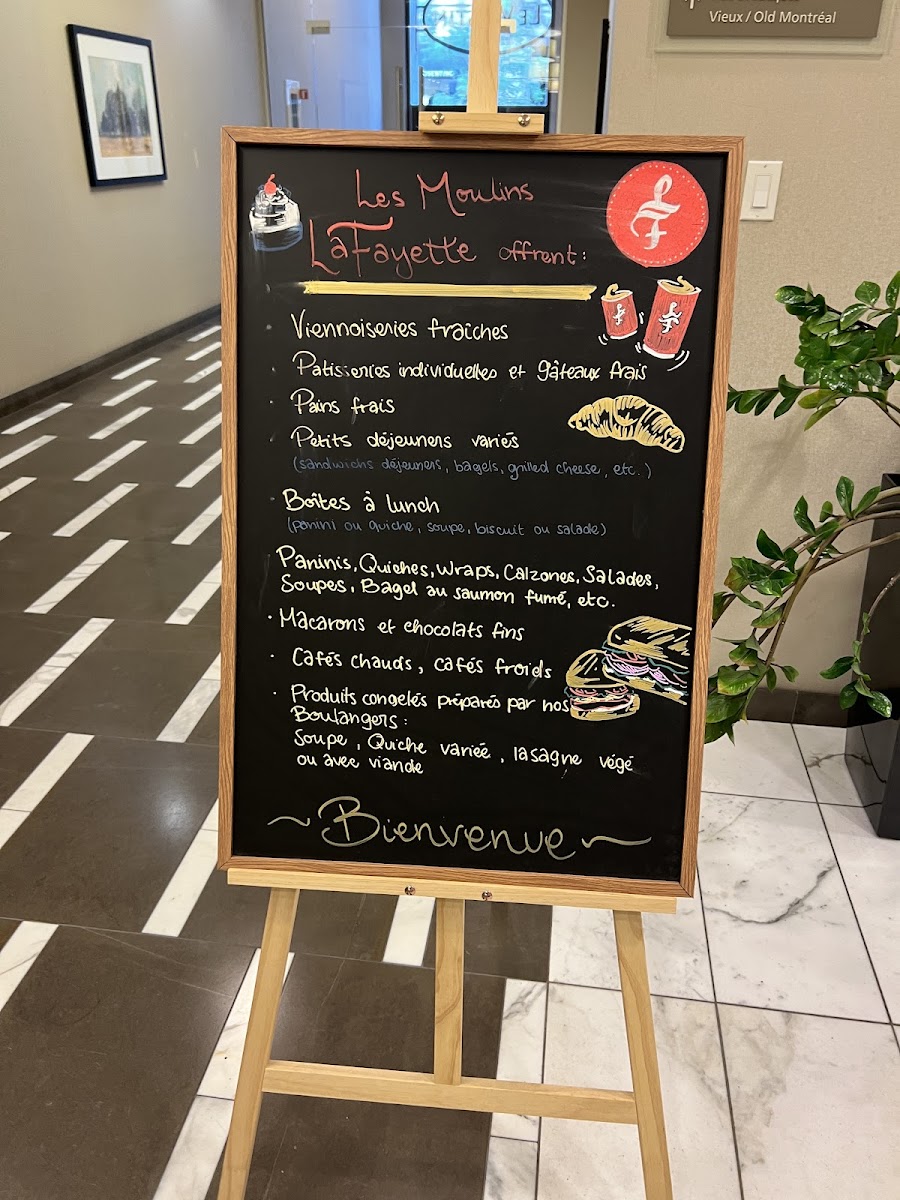 Vieux / Old Montréal
Les Moulins
LaFayette offrent:
Viennoiseries fraîches
Patisseries individuelles et gâteaux frais
Pains frais
Petits déjeuners variés
(sandwichs déjeuners, bagels, grilled cheese, etc.)
Boîtes à lunch
(panini ou quiche, soupe, biscuit ou salade)
Paninis, Quiches, Wraps, Calzones, Salades,
Soupes, Bagel au saumon fumé, etc.
Macarons et chocolats fins
Cafés chauds, cafés froids
Produits congelés préparés par nos
Boulangers:
Soupe, Quiche variée, lasagne végé
ou avec viande
~Bienvenue~